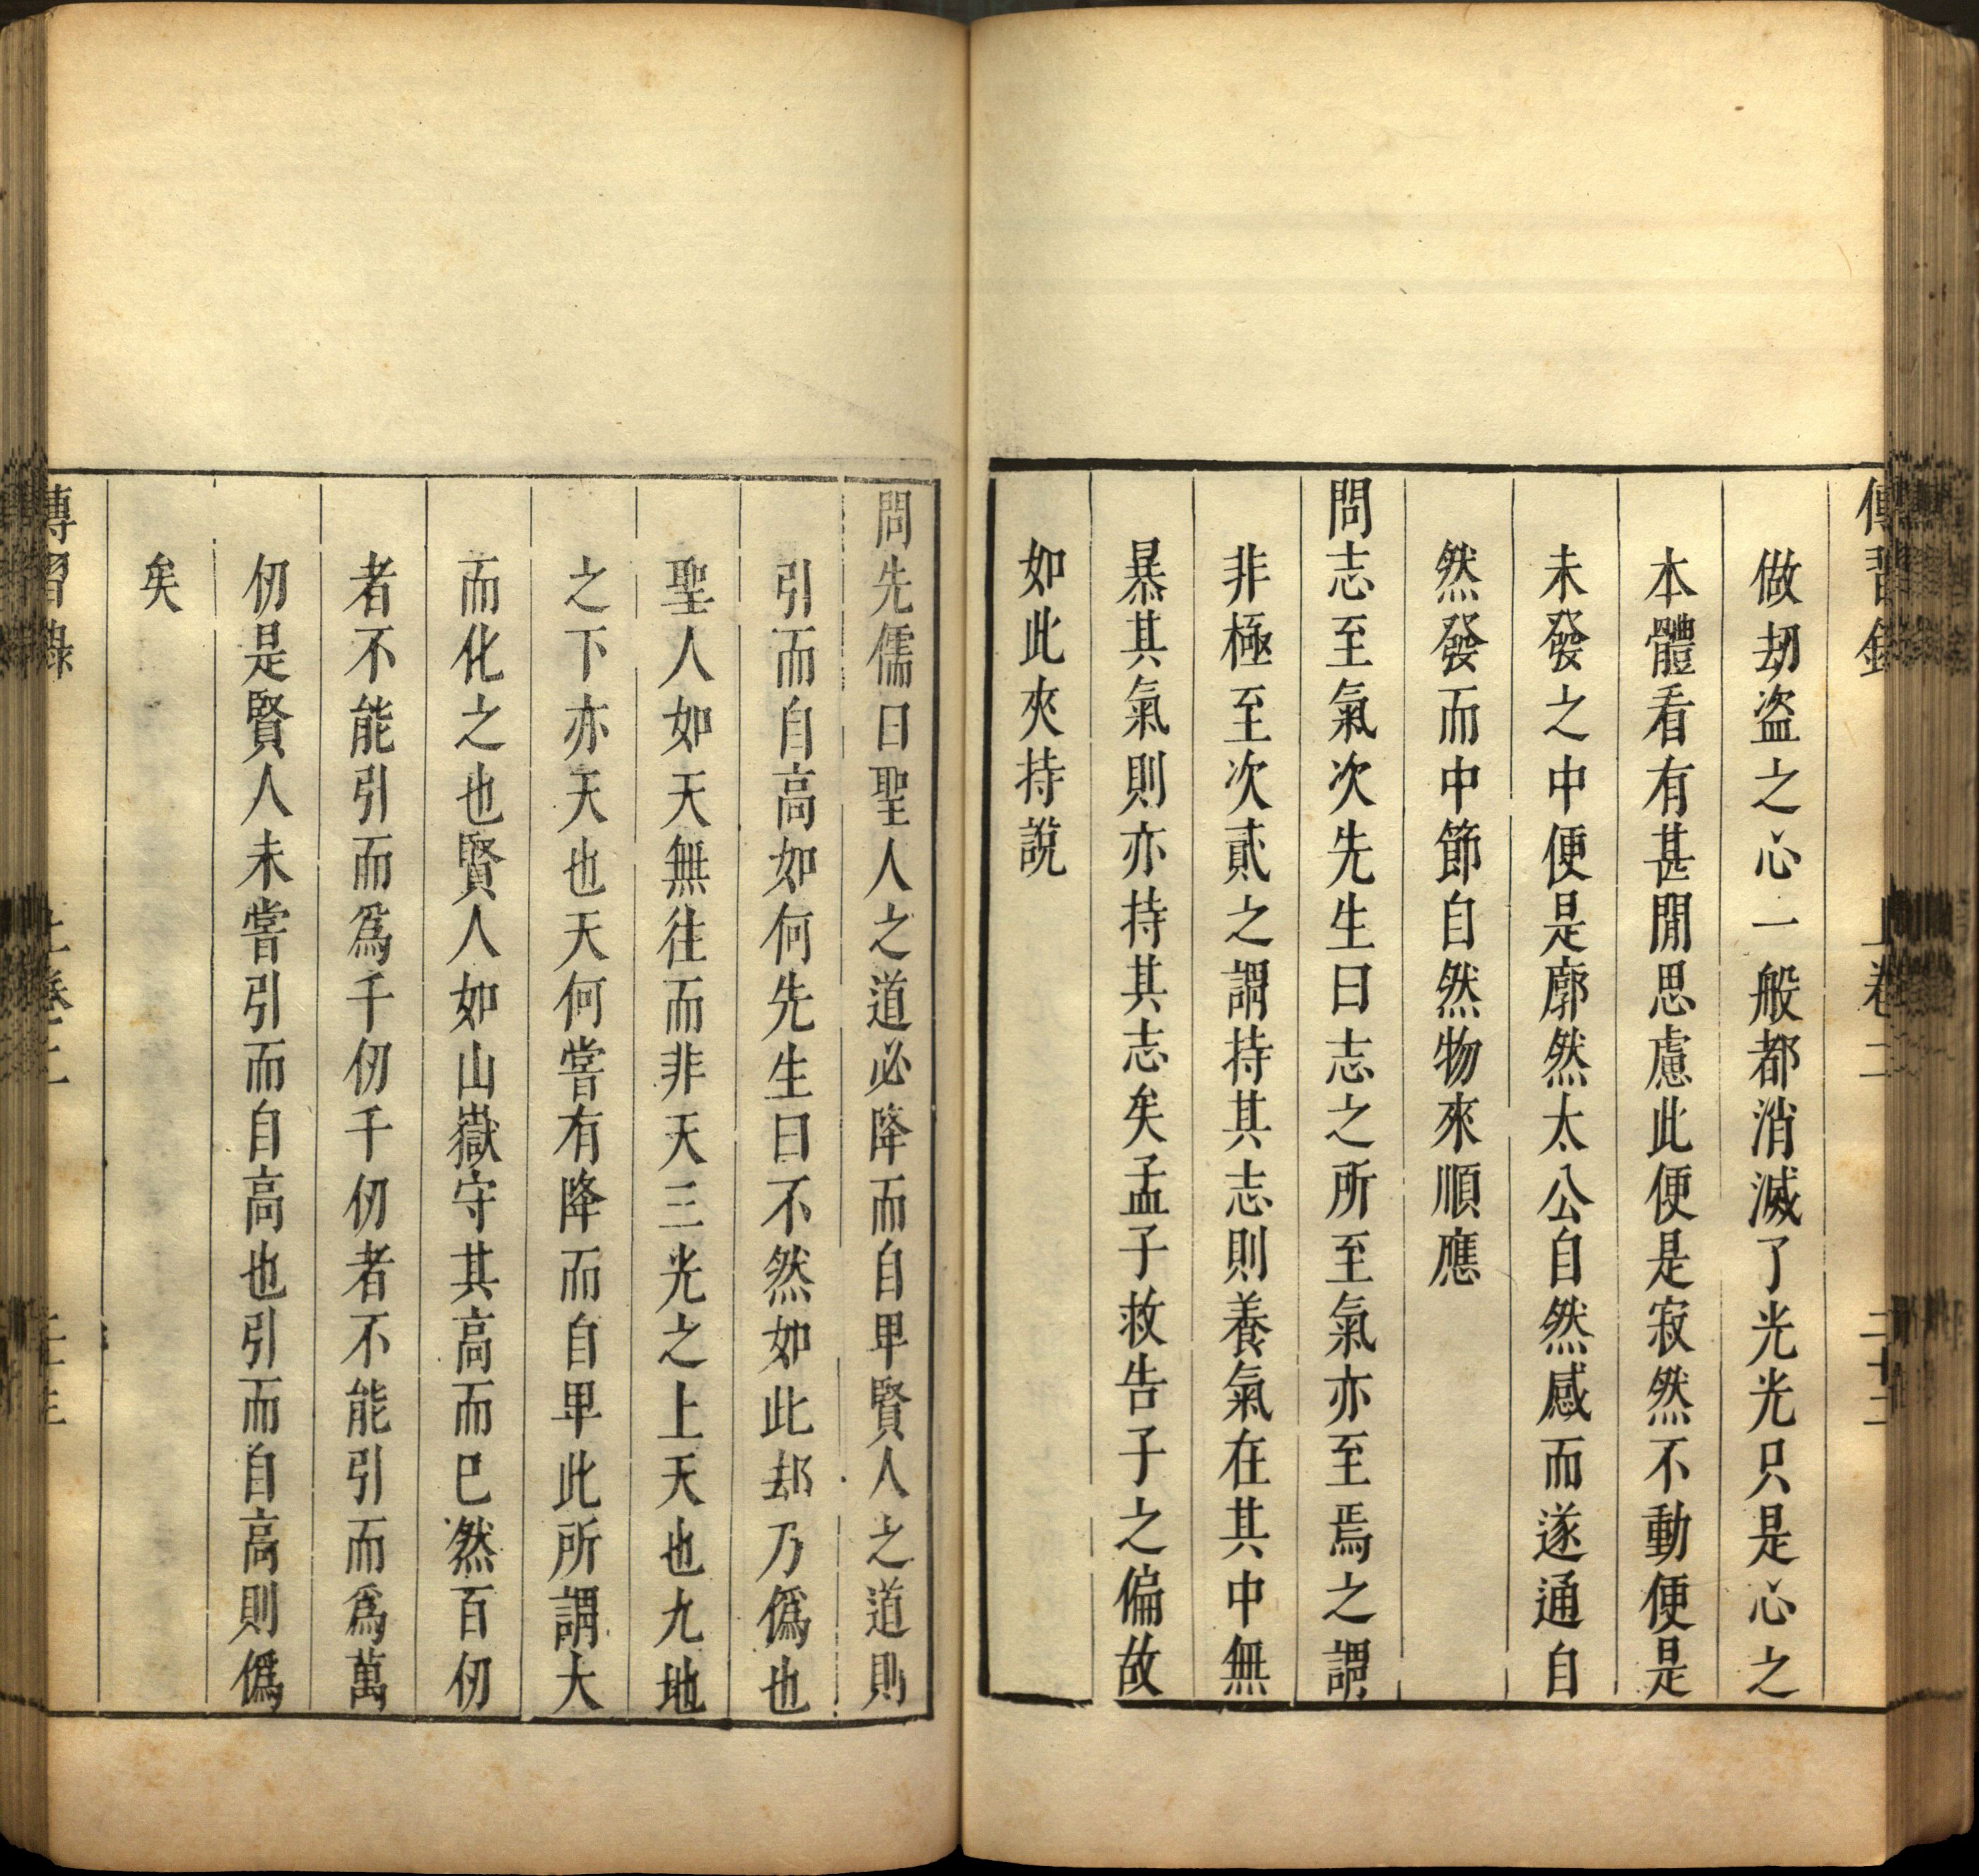 傳習錄 上卷二 二十三
做劫盜之心一般都消滅了光光只是心之
本體看有甚閒思慮此便是寂然不動便是
未發之中便是廓然太公自然感而遂通自
然發而中節自然物來順應
問志至氣次先生曰志之所至氣亦至焉之謂
非極至次貳之謂持其志則養氣在其中無
暴其氣則亦持其志矣孟子救告子之偏故
如此夾持說
問先儒曰聖人之道必降而自卑賢人之道則
引而自高如何先生曰不然如此却乃僞也
聖人如天無往而非天三光之上天也九地
之下亦天也天何嘗有降而自卑此所謂大
而化之也賢人如山嶽守其高而已然百仞
者不能引而爲千仞千仞者不能引而爲萬
仞是賢人未嘗引而自高也引而自高則僞
矣
傳習錄 上卷二